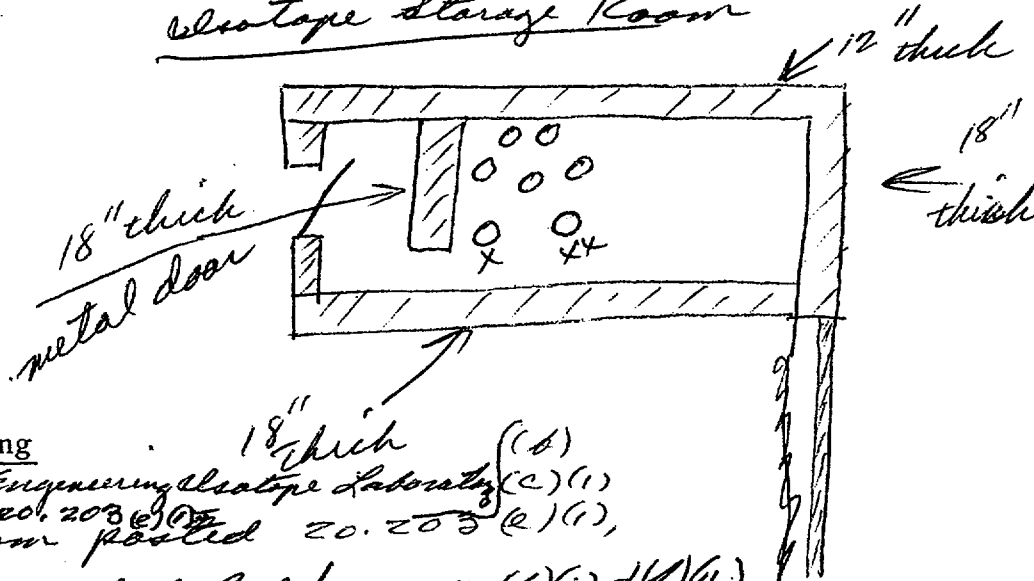 Isotope Storage Room
12" thick
18"
thick
18" thick
metal door
18"
thick
ng
Engineering Isotope Laboratory (b)
(c)(1)
20.203(e)(1)
posted 20.203 (e)(1),